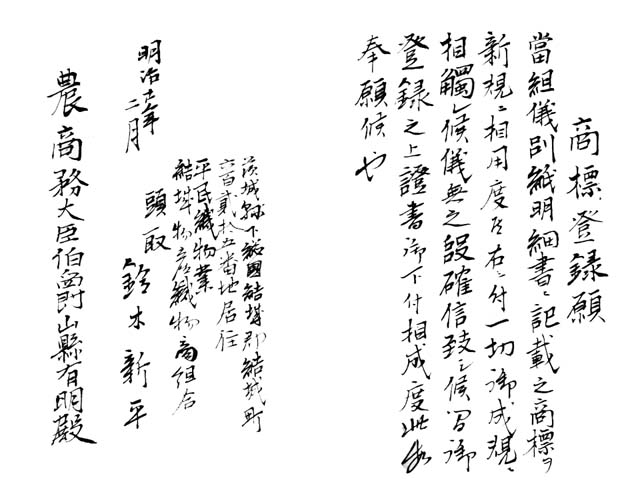 商標登録願
當組儀別紙明細書ニ記載之商標ヲ
新規ニ相用度右ニ付一切御成規ニ
相觸レ候儀無之段確信致シ候間御
登録之上證書御下付相成度此如
奉願候也
茨城縣下総國結城郡結城町
六百貳拾五番地居住
平民織物業
結城物産織物商組合
頭取
鈴木新平
明治廿年
二月
農商務大臣伯爵山縣有朋殿